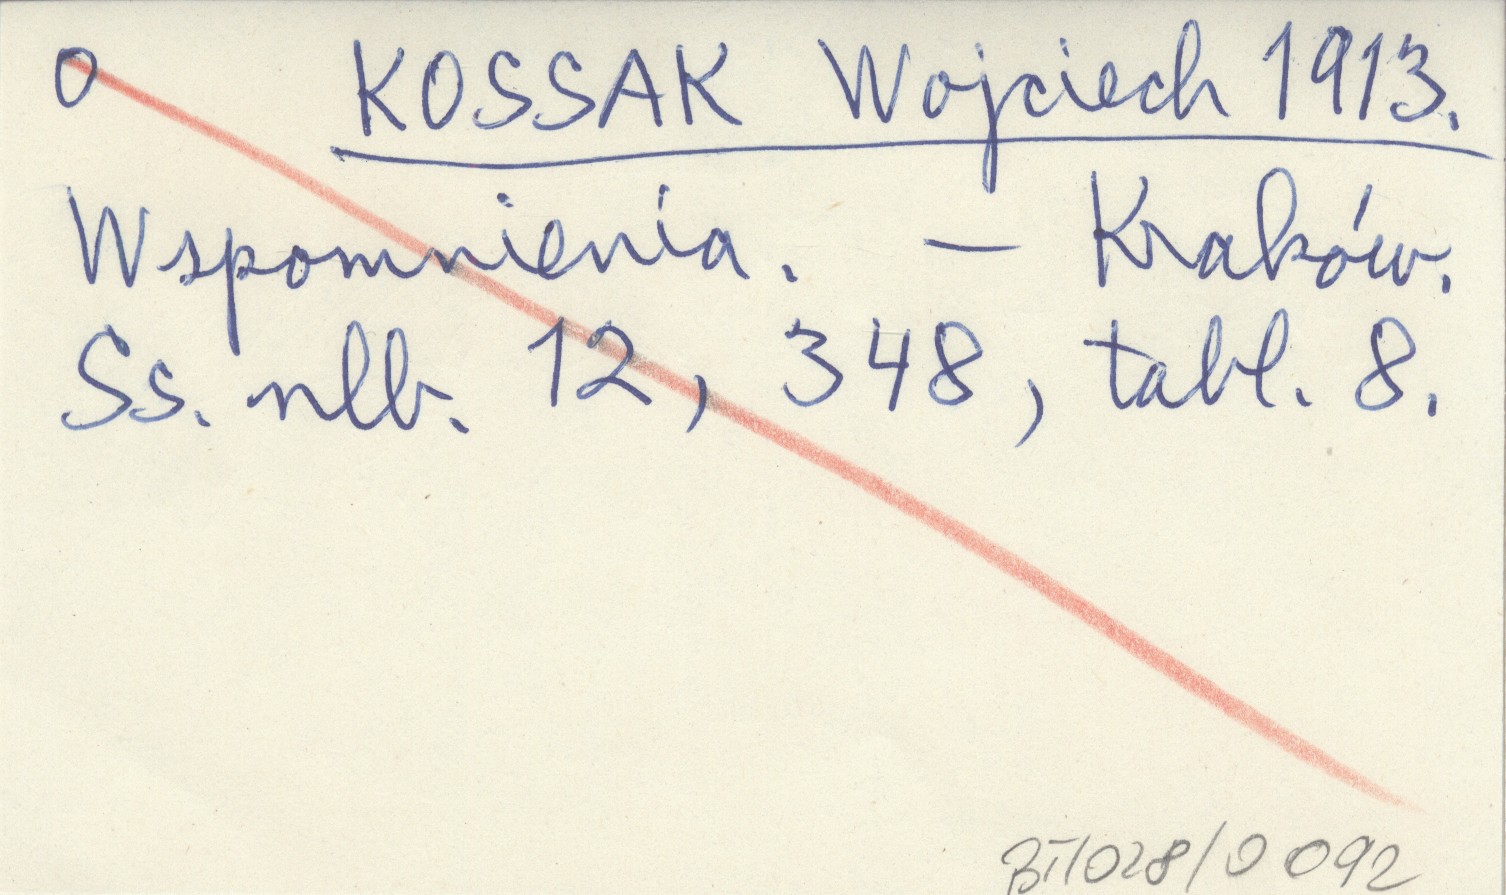 O KOSSAK Wojciech 1913.
Wspomnienia. — Kraków.
Ss. nlb. 12, 348, tabl. 8.
BT/028/0 092